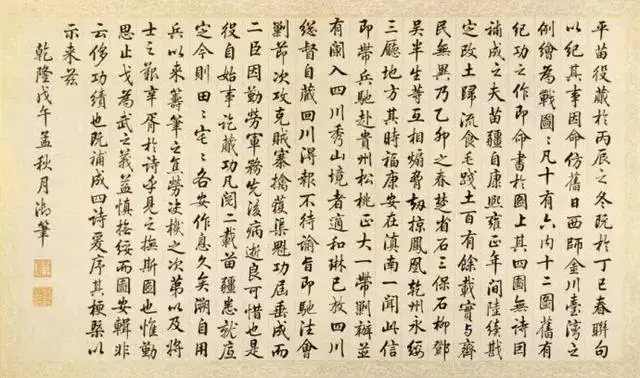 平苗役蕆於丙辰之冬既於丁巳春聯句
以紀其事因命仿舊日西師金川臺灣之
例繪為戰圖〻凡十有六內十二圖舊有
紀功之作即命書於圖上其四圖無詩因
補成之夫苗疆自康熙雍正年間陸續戡
定改土歸流食毛踐土百有餘載實與齊
民無異乃乙卯之春楚省石三保石柳鄧
吴半生等互相煽脅刼掠鳳凰乾州永綏
三廳地方其時福康安在滇南一聞此信
即帶兵馳赴貴州松桃正大一帶剿辦並
有闌入四川秀山境者適和琳已放四川
總督自藏回川得報不待諭旨即馳往會
剿節次攻克賊寨擒獲渠魁功屆垂成而
二臣因勤勞軍務先後病逝良可惜也是
役自始事訖蕆功凡閱二載苗疆悉就底
定今則田〻宅〻各安作息久矣溯自用
兵以來籌筆之宜勞決機之次第以及將
士之艱辛胥於詩乎見之撫斯圖也惟勤
思止戈為武之義益慎拊綏而圖安輯非
云侈功績也既補成四詩爰序其梗槩以
示來茲
乾隆戊午孟秋月御筆